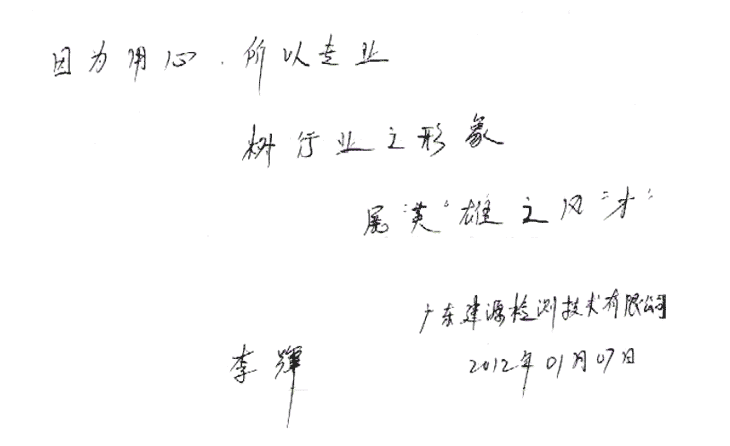 因为用心.所以专业
树行业之形象
展"英"雄之风"才"
广东建源检测技术有限公司
李辉 2012年01月07日